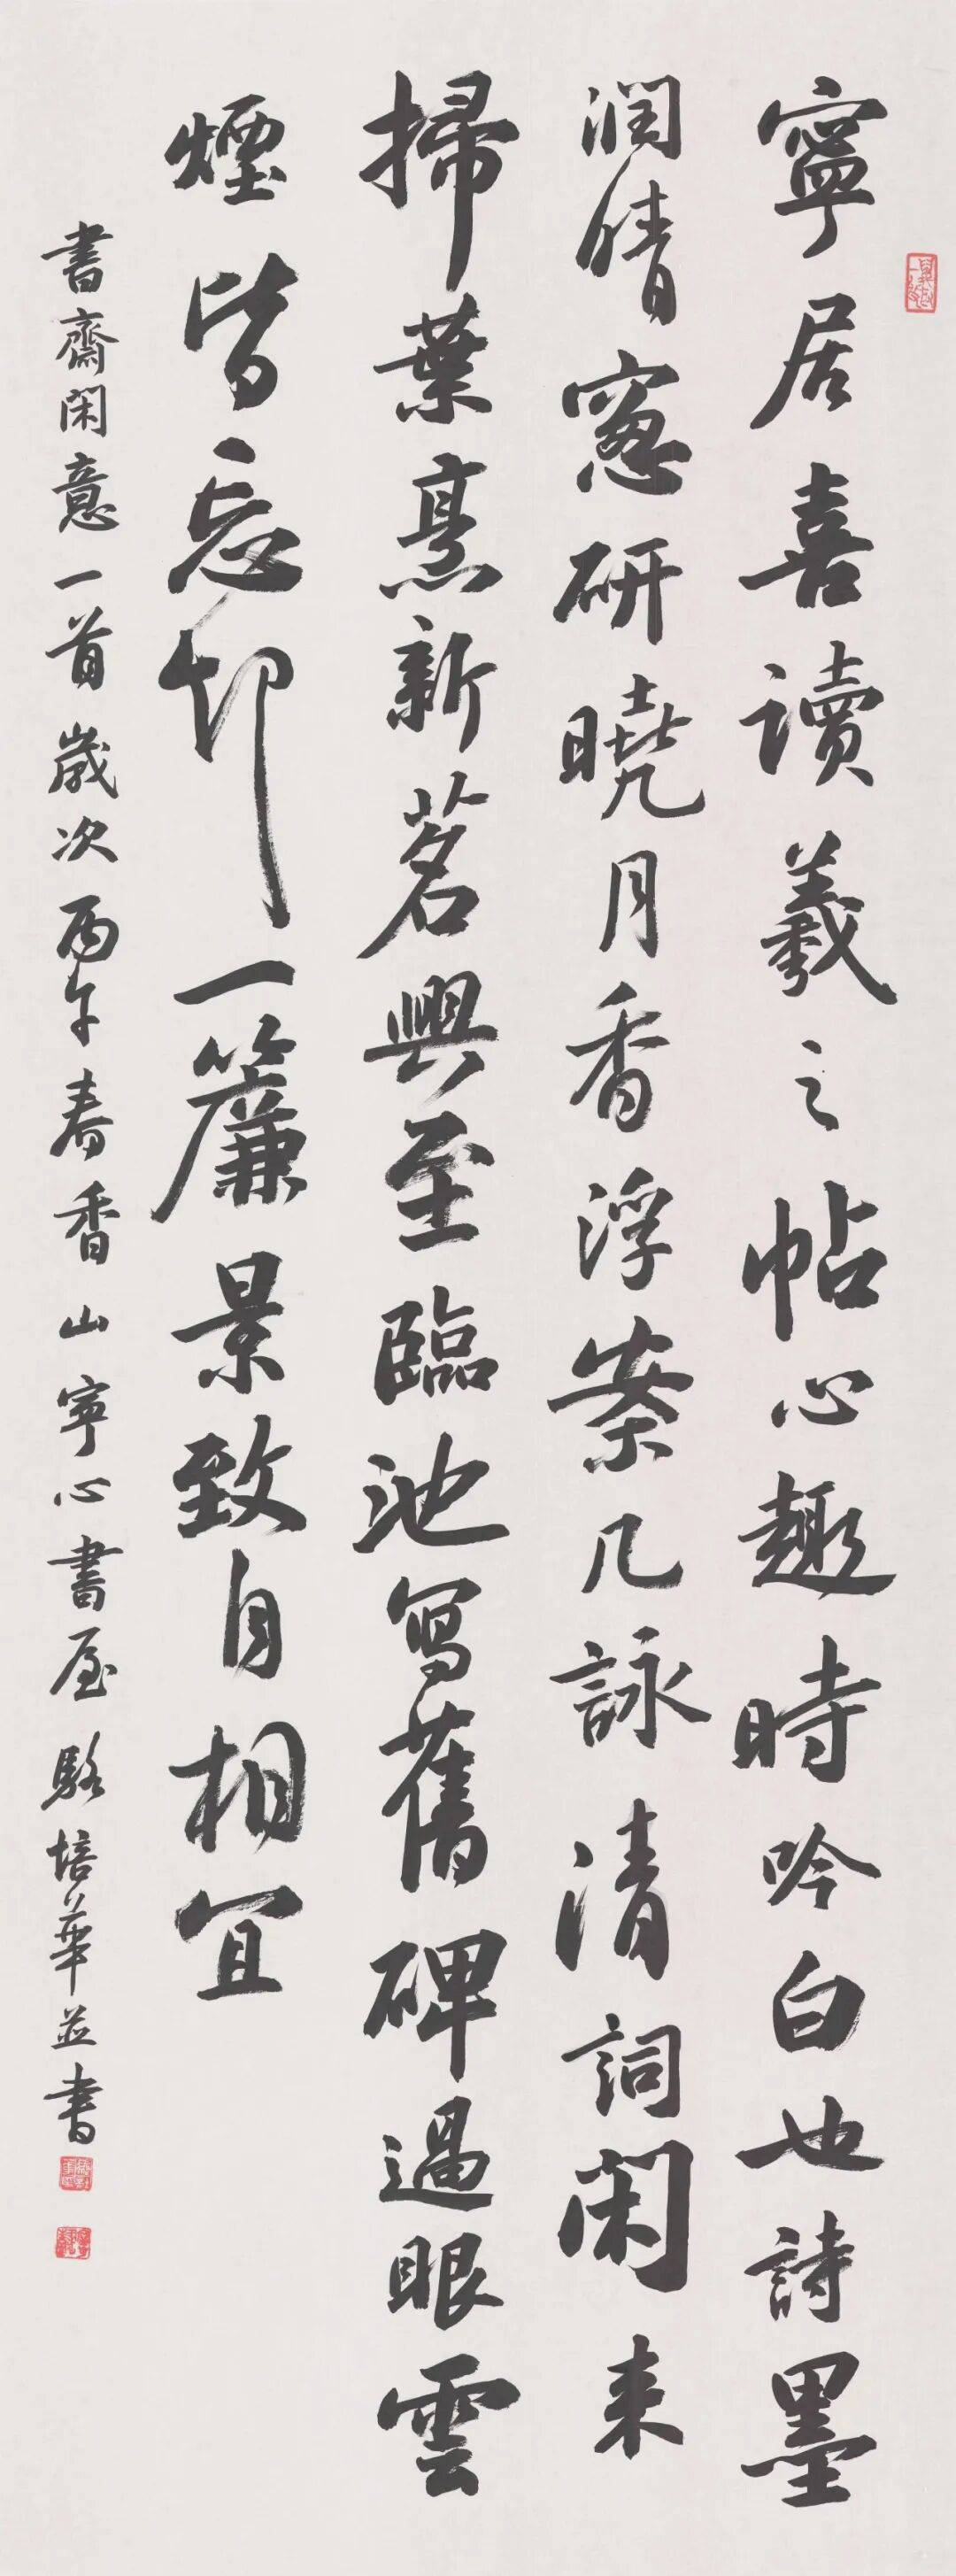 寧居喜讀羲之帖心趣時吟白也詩墨
潤晴窻研曉月香浮案几詠清詞閑来
掃葉烹新茗興至臨池寫舊碑過眼雲
煙皆忘却一簾景致自相宜
書齋閑意一首歲次丙午春香山寧心書屋駱培華並書